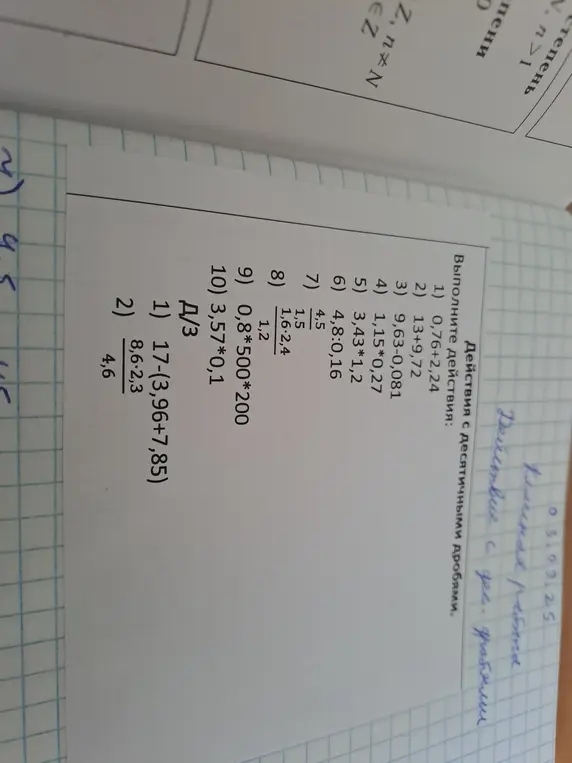 степень
N, n > 1
пени
Z, n * N
∈ Z
03.09.25
Классная работа
Действия с дес. дробями
Действия с десятичными дробями.
Выполните действия:
1) 0,76+2,24
2) 13+9,72
3) 9,63-0,081
4) 1,15*0,27
5) 3,43*1,2
6) 4,8:0,16
7) 4,5
1,5
8) 1,6·2,4
1,2
9) 0,8*500*200
10) 3,57*0,1
Д/З
1) 17-(3,96+7,85)
2) 8,6·2,3
4,6